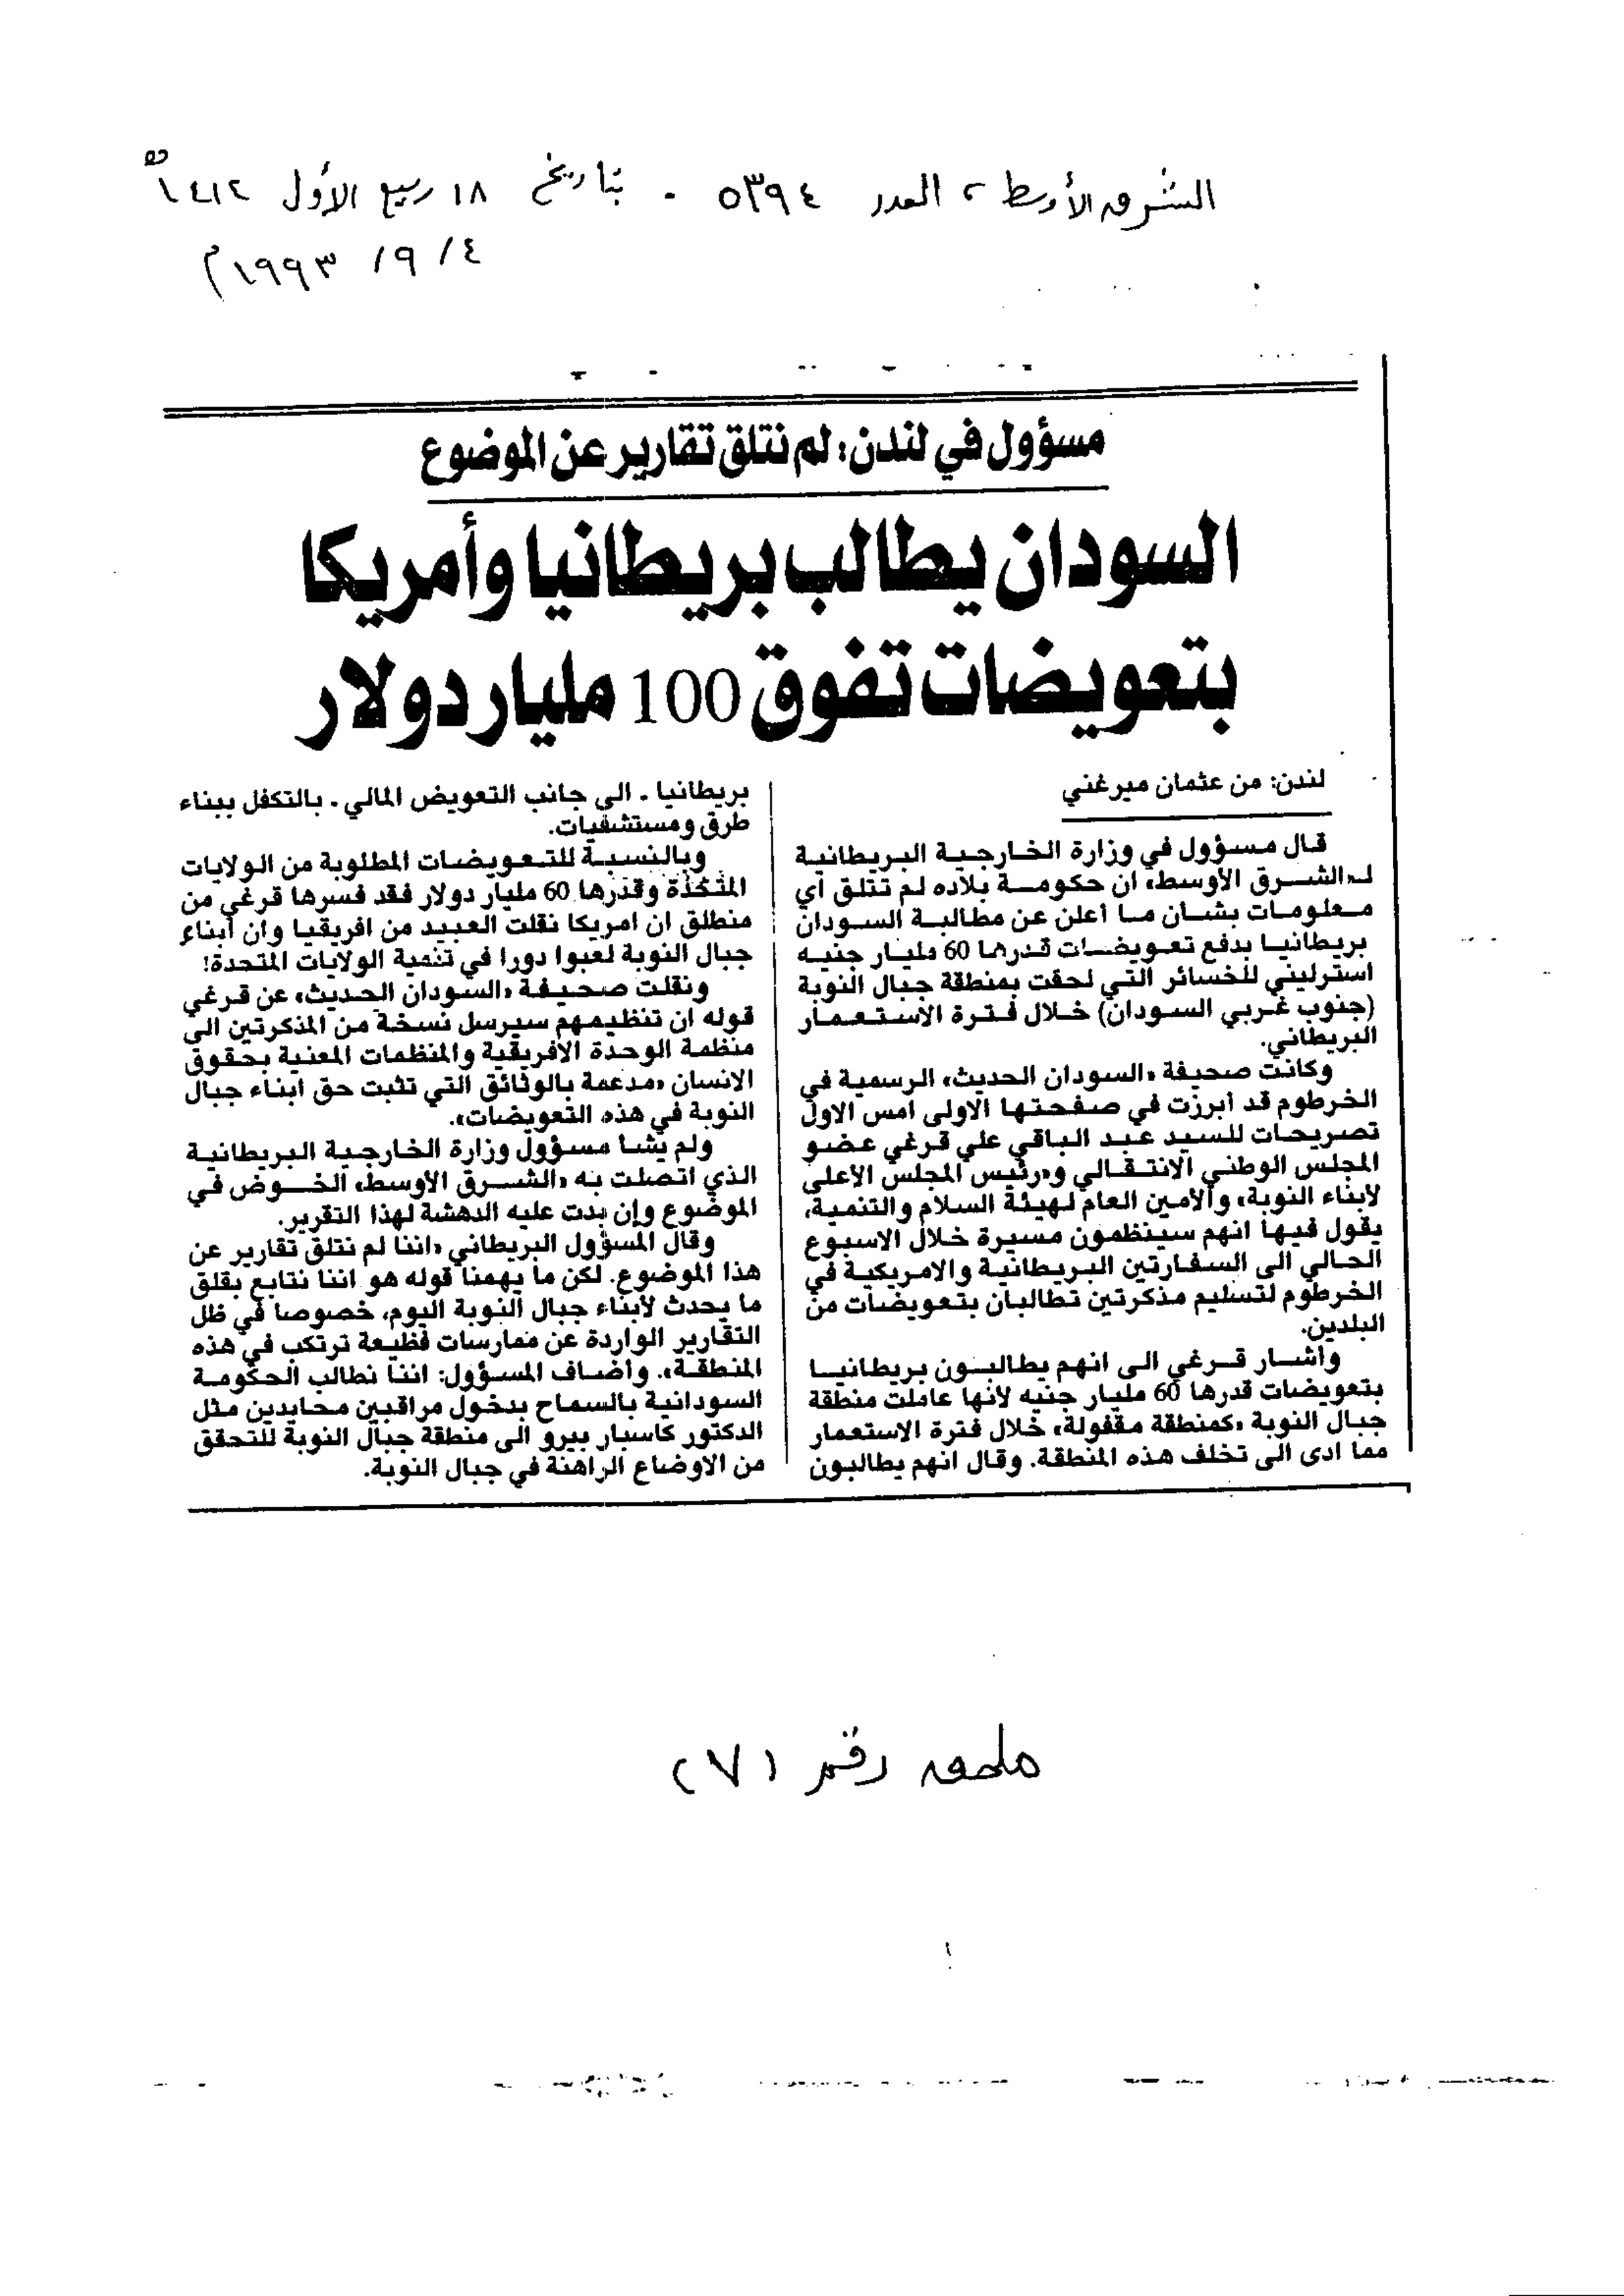 الشرق الأوسط، العدد ٥٣٩٤ - بتاريخ ١٨ ربيع الأول ١٤١٢ هـ
٤ / ٩ / ١٩٩٣م
مسؤول في لندن: لم نتلق تقارير عن الموضوع
السودان يطالب بريطانيا وأمريكا
بتعويضات تفوق 100 مليار دولار
لندن: من عثمان ميرغني
قال مسؤول في وزارة الخارجية البريطانية
لـ«الشرق الأوسط» ان حكومة بلاده لم تتلق أي
معلومات بشأن ما أعلن عن مطالبة السودان
بريطانيا بدفع تعويضات قدرها 60 مليار جنيه
استرليني للخسائر التي لحقت بمنطقة جبال النوبة
(جنوب غربي السودان) خلال فترة الاستعمار
البريطاني.
وكانت صحيفة «السودان الحديث» الرسمية في
الخرطوم قد أبرزت في صفحتها الاولى امس الاول
تصريحات للسيد عبد الباقي علي قرغي عضو
المجلس الوطني الانتقالي و«رئيس المجلس الأعلى
لأبناء النوبة» والأمين العام لهيئة السلام والتنمية،
يقول فيها انهم سينظمون مسيرة خلال الاسبوع
الحالي الى السفارتين البريطانية والامريكية في
الخرطوم لتسليم مذكرتين تطالبان بتعويضات من
البلدين.
وأشار قرغي الى انهم يطالبون بريطانيا
بتعويضات قدرها 60 مليار جنيه لأنها عاملت منطقة
جبال النوبة «كمنطقة مقفولة» خلال فترة الاستعمار
مما ادى الى تخلف هذه المنطقة. وقال انهم يطالبون
بريطانيا - الى جانب التعويض المالي - بالتكفل ببناء
طرق ومستشفيات.
وبالنسبة للتعويضات المطلوبة من الولايات
المتحدة وقدرها 60 مليار دولار فقد فسرها قرغي من
منطلق ان امريكا نقلت العبيد من افريقيا وان أبناء
جبال النوبة لعبوا دورا في تنمية الولايات المتحدة!
ونقلت صحيفة «السودان الحديث» عن قرغي
قوله ان تنظيمهم سيرسل نسخة من المذكرتين الى
منظمة الوحدة الافريقية والمنظمات المعنية بحقوق
الانسان «مدعمة بالوثائق التي تثبت حق ابناء جبال
النوبة في هذه التعويضات».
ولم يشأ مسؤول وزارة الخارجية البريطانية
الذي اتصلت به «الشرق الأوسط» الخوض في
الموضوع وإن بدت عليه الدهشة لهذا التقرير.
وقال المسؤول البريطاني «اننا لم نتلق تقارير عن
هذا الموضوع. لكن ما يهمنا قوله هو اننا نتابع بقلق
ما يحدث لأبناء جبال النوبة اليوم، خصوصا في ظل
التقارير الواردة عن ممارسات فظيعة ترتكب في هذه
المنطقة». وأضاف المسؤول: اننا نطالب الحكومة
السودانية بالسماح بدخول مراقبين محايدين مثل
الدكتور كاسبار بيرو الى منطقة جبال النوبة للتحقق
من الاوضاع الراهنة في جبال النوبة.
ملحق رقم (٧)